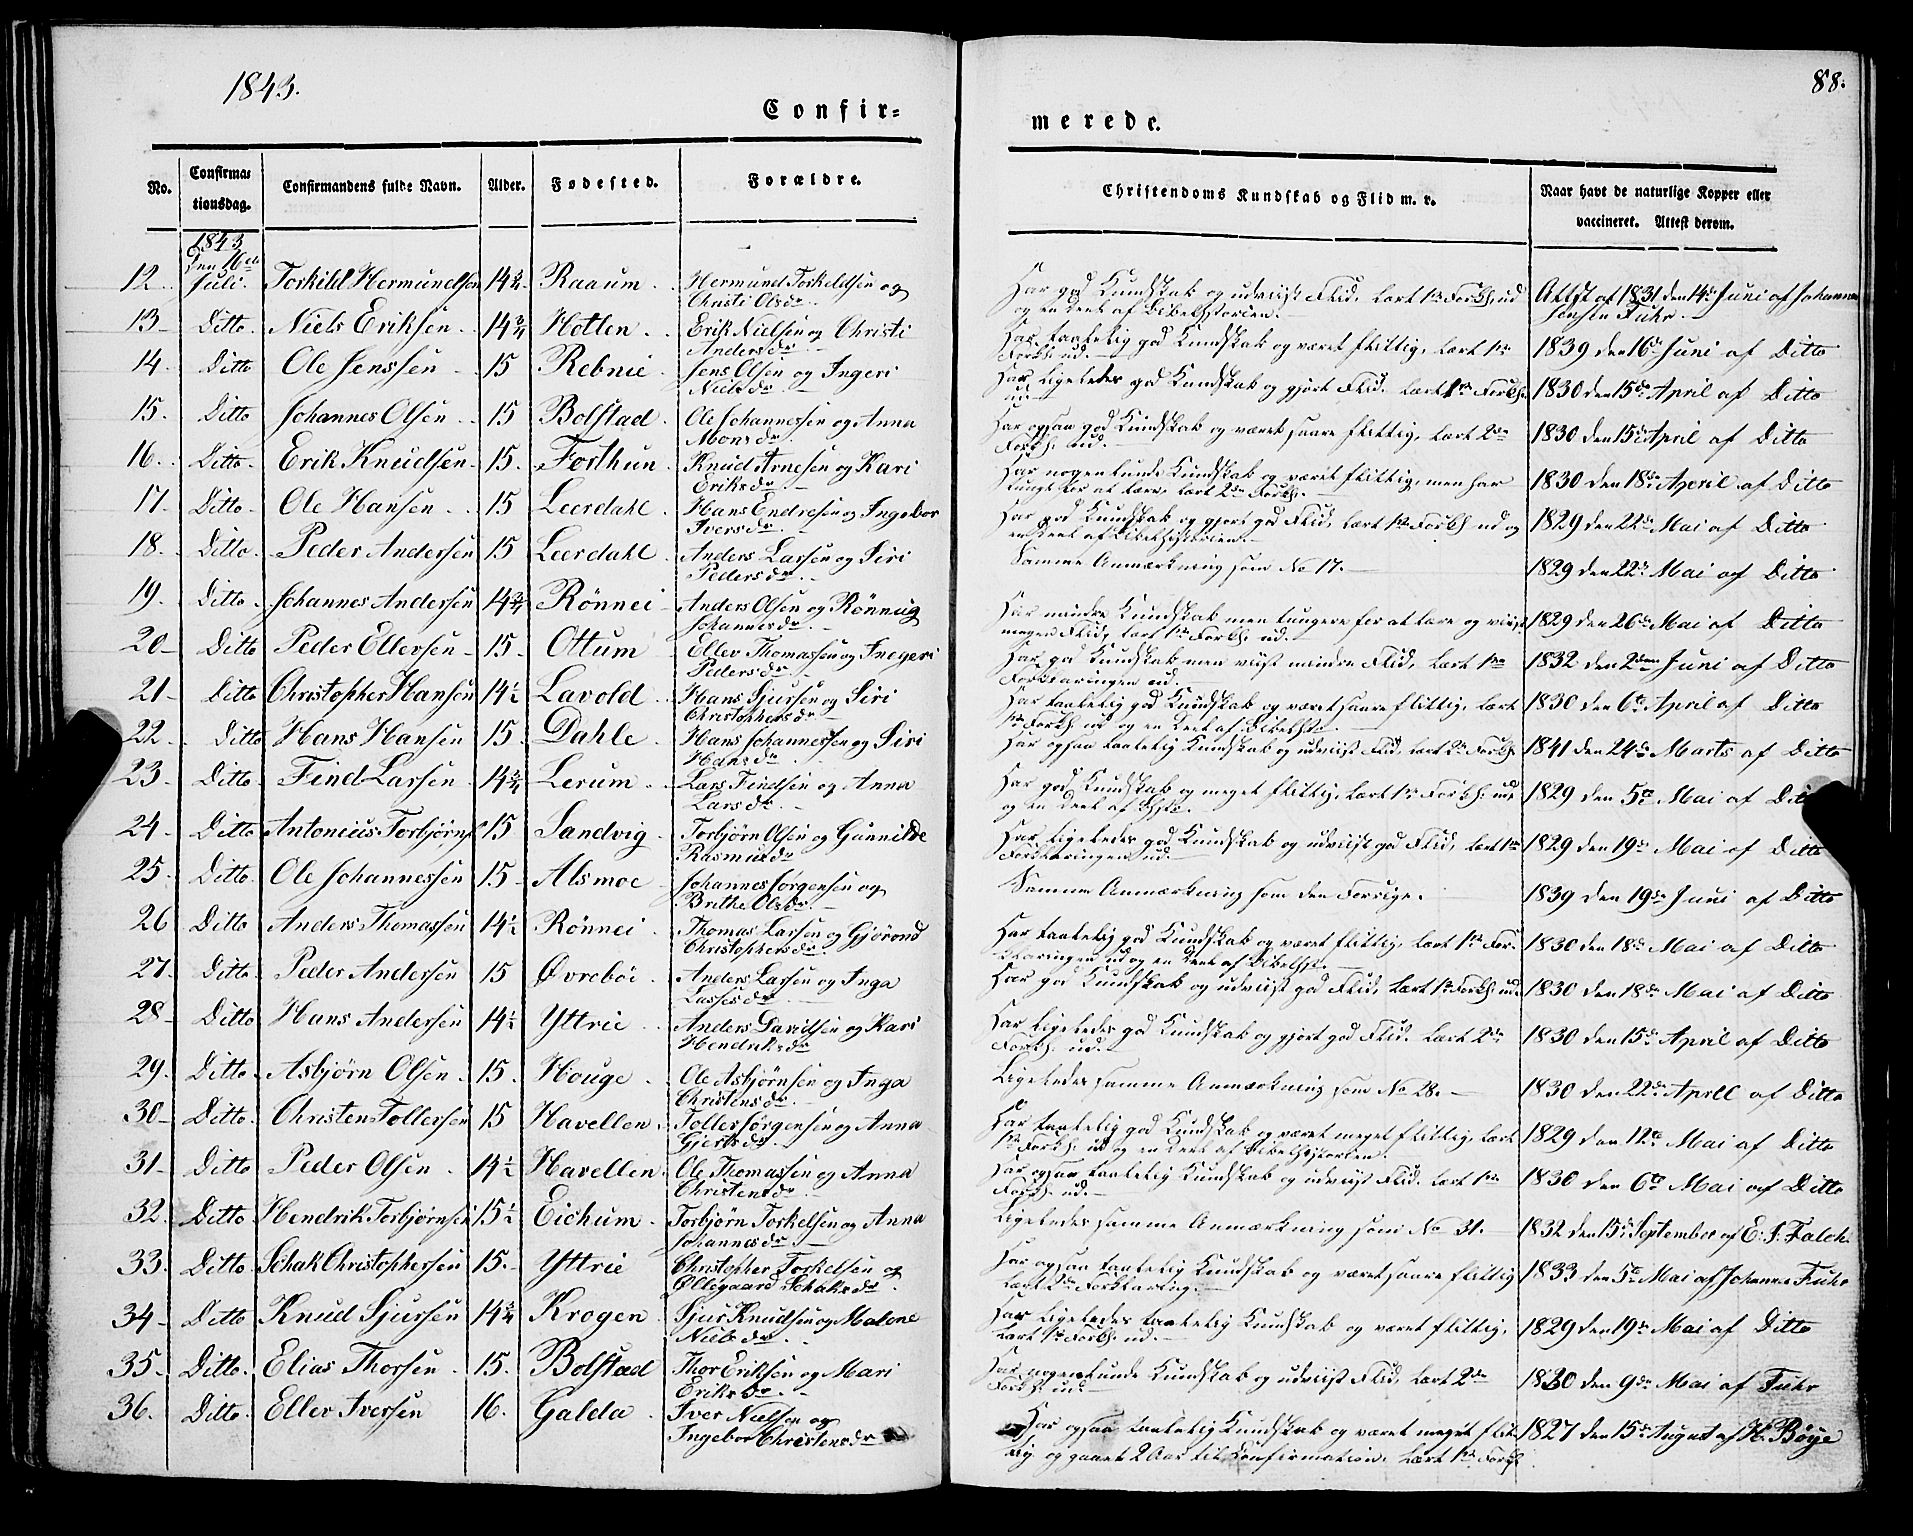 1843.
88.
Confir-
merede.
No. Confirma- tionsdag. Confirmandens fulde Navn. Alder. Fødested. Forældre. Christendoms Kundskab og Flid m. v. Naar havt de naturlige Kopper eller vaccineret. Attest derom.
1843
12. Den 16de Juli. Torkild Hermundsen 14 3/4. Raaum. Hermund Torkeldsen og Christi Olsdr. Har god Kundskab og udviist Flid, lært 1ste Forkl. ud og en Deel af Bibelhistorien. Attst af 1831 den 14de Juni af Johannes Jensen Fuhr.
13 Ditto. Niels Eriksen. 14 3/4 Hotlen. Erik Nielsen og Christi Andersdr. Har taalelig god Kundskab og været flittig, lært 1ste Forkl. ud. 1839 den 16de Juni af Ditto
14. Ditto Ole Jenssen 15 Rebnie. Jens Olsen og Ingeri Nielsdr. Har ligeledes god Kundskab og gjort Flid. lært 1ste Forkl. ud. 1830 den 15de April af Ditto
15. Ditto Johannes Olsen. 15 Bolstad. Ole Johannessen og Anna Monsdr. Har ogsaa god Kundskab og været saare flittig, lært 2den Forkl. ud. 1830 den 15de April af Ditto
16. Ditto. Erik Knudsen. 15. Forthun. Knud Arnesen og Kari Eriksdr. Har nogenlunde Kundskab og været flittig, men har tungt for at lære, lært 2den Forkl. 1830 den 18de April af Ditto
17. Ditto. Ole Hansen. 15 Leerdahl. Hans Endresen og Ingebor Iversdr. Har god Kundskab og gjort god Flid, lært 1ste Forkl. ud og en Deel af Bibelhistorien. 1829 den 22de Mai af Ditto
18. Ditto. Peder Andersen 15 Leerdahl. Anders Larsen og Siri Pedersdr. Samme Anmærkning som No 17. 1829 den 22de Mai af Ditto
19. Ditto. Johannes Andersen 14 3/4 Rönnei Anders Olsen og Rönnug Johannesdr. Har mindre Kundskab men tungere for at lære og viist megen Flid, lært 1ste Forkl. ud. 1829 den 26de Mai af Ditto
20 Ditto Peder Ellersen 15. Ottum Eller Thomassen og Inegeri Pedersdr. Har god Kundskab men viist mindre Flid, lært 1ste Forklaringen ud. 1832 den 2den Juni af Ditto
21 Ditto Christopher Hansen 14 1/2 Lavold. Hans Sjursen og Siri Christophersdr. Har taalelig god Kundskab og været saare flittig, lært 1ste Forkl. ud og en Deel af Bibelhst. 1830 den 6te April af Ditto
22. Ditto Hans Hansen 15. Dahle. Hans Johannessen og Siri Hansdr. Har ogsaa taalelig Kundskab og udviist Flid, lært 2den Forkl. 1841 den 24de Marts af Ditto
23. Ditto. Find Larsen 14 3/4 Lerum. Lars Findsen og Anna Larsdr. Har god Kundskab og meget flittig, lært 1ste Forkl. ud og en Deel af Bhst. 1829 den 5te Mai af Ditto
24. Ditto Antonius Torbjörns 15 Sandvig Torbjörn Olsen og Gunnilde Rasmusdr. Har ligeledes god Kundskab og udviist god Flid, lært 1ste Forklaringen ud. 1829 den 19de Mai af Ditto
25. Ditto. Ole Johannessen 15. Alsmoe Johannes Jörgensen og Brithe Olsdr. Samme Anmærkning som den Forrige. 1839 den 19de Juni af Ditto
26 Ditto Anders Thomassen 14 1/2 Rönnei. Thomas Larsen og Gjörond Christophersdr. Har taalelig god Kundskab og været flittig, lært 1ste Forklaringen ud og en Deel af Bibelhst. 1830 den 18de Mai af Ditto
27. Ditto. Peder Andersen 15 Øvreböi Anders Larsen og Inga Lassesdr. Har god Kundskab og udviist god Flid, lært 1ste Forkl. ud. 1830 den 18de Mai af Ditto
28 Ditto Hans Andersen 14 1/2 Yttrie Anders Davidsen og Kari Hendriksdr. Har ligeledes god Kundskab og gjort god Flid. lært 2den Forkl. ud. 1830 den 15de April af Ditto
29. Ditto. Asbjörn Olsen. 15. Houge. Ole Asbjörnsen og Inga Christensdr. Ligeledes samme Anmærkning som No 28. 1830 den 22de April af Ditto
30 Ditto. Christen Tollersen 15 Havellen. Toller Jörgensen og Anna Gjertsdr. Har taalelig god Kundskab og været meget flittig, lært 1ste Forkl. ud og en Deel af Bibelhistorien. 1829 den 12te Mai af Ditto
31 Ditto Peder Olsen. 14 1/2 Havellen. Ole Thomassen og Anna Christensdr. Har ogsaa taalelig Kundskab og udviist Flid. lært 1ste Forkl. ud. 1830 den 6te Mai af Ditto
32. Ditto Hendrik Torbjörnsen 15 1/2 Eichum. Torbjörn Torkelsen og Anna Johannesdr. Ligeledes samme Anmærkning som No 31. 1832 den 15de September af E. J. Falch.
33. Ditto. Schak Christophersen 15. Yttrie Christopher Torkelsen og Øllegaard Schaksdr. Har ogsaa taalelig Kundskab og været saare flittig lært 2den Forklaring. 1833 den 5te Mai af Johannes Fuhr
34 Ditto Knud Sjursen 14 3/4 Krogen Sjur Knudsen og Malene Nielsdr. Har ligeledes taalelig Kundskab og været flittig, lært 1ste Forkl. ud. 1829 den 19de Mai af Ditto
35. Ditto. Elias Thorsen. 15. Bolstad Thor Eriksen og Mari Eriksdr. Har nogenlunde Kundskab og udviist Flid, lært 2den Forkl. ud. 1830 den 9de Mai af Fuhr
36. Ditto. Eller Iversen 16. Galda. Iver Nielsen og Ingebor Christensdr Har ogsaa taalelig Kundskab og været meget flittig og gaaet 2 Aar til Confirmation. lært 1ste Forkl. 1827 den 15de August af H. Böye